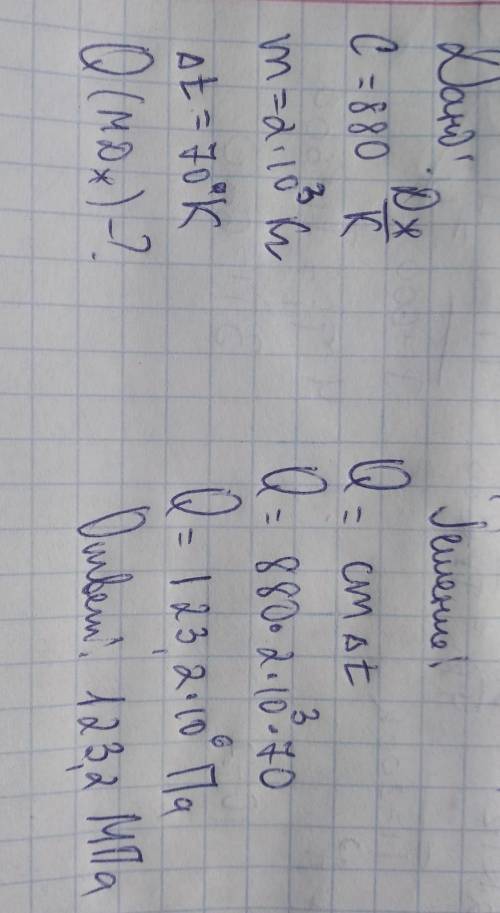 Дано:
C = 880 Дж/К
m = 2·10³ кг
Δt = 70°К
Q (МДж) - ?
Решение:
Q = cmΔt
Q = 880·2·10³·70
Q = 123,2·10⁶ Па
Ответ: 123,2 МПа